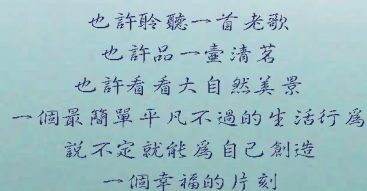 也許聆聽一首老歌
也許品一壺清茗
也許看看大自然美景
一個最簡單平凡不過的生活行為
說不定就能為自己創造
一個幸福的片刻